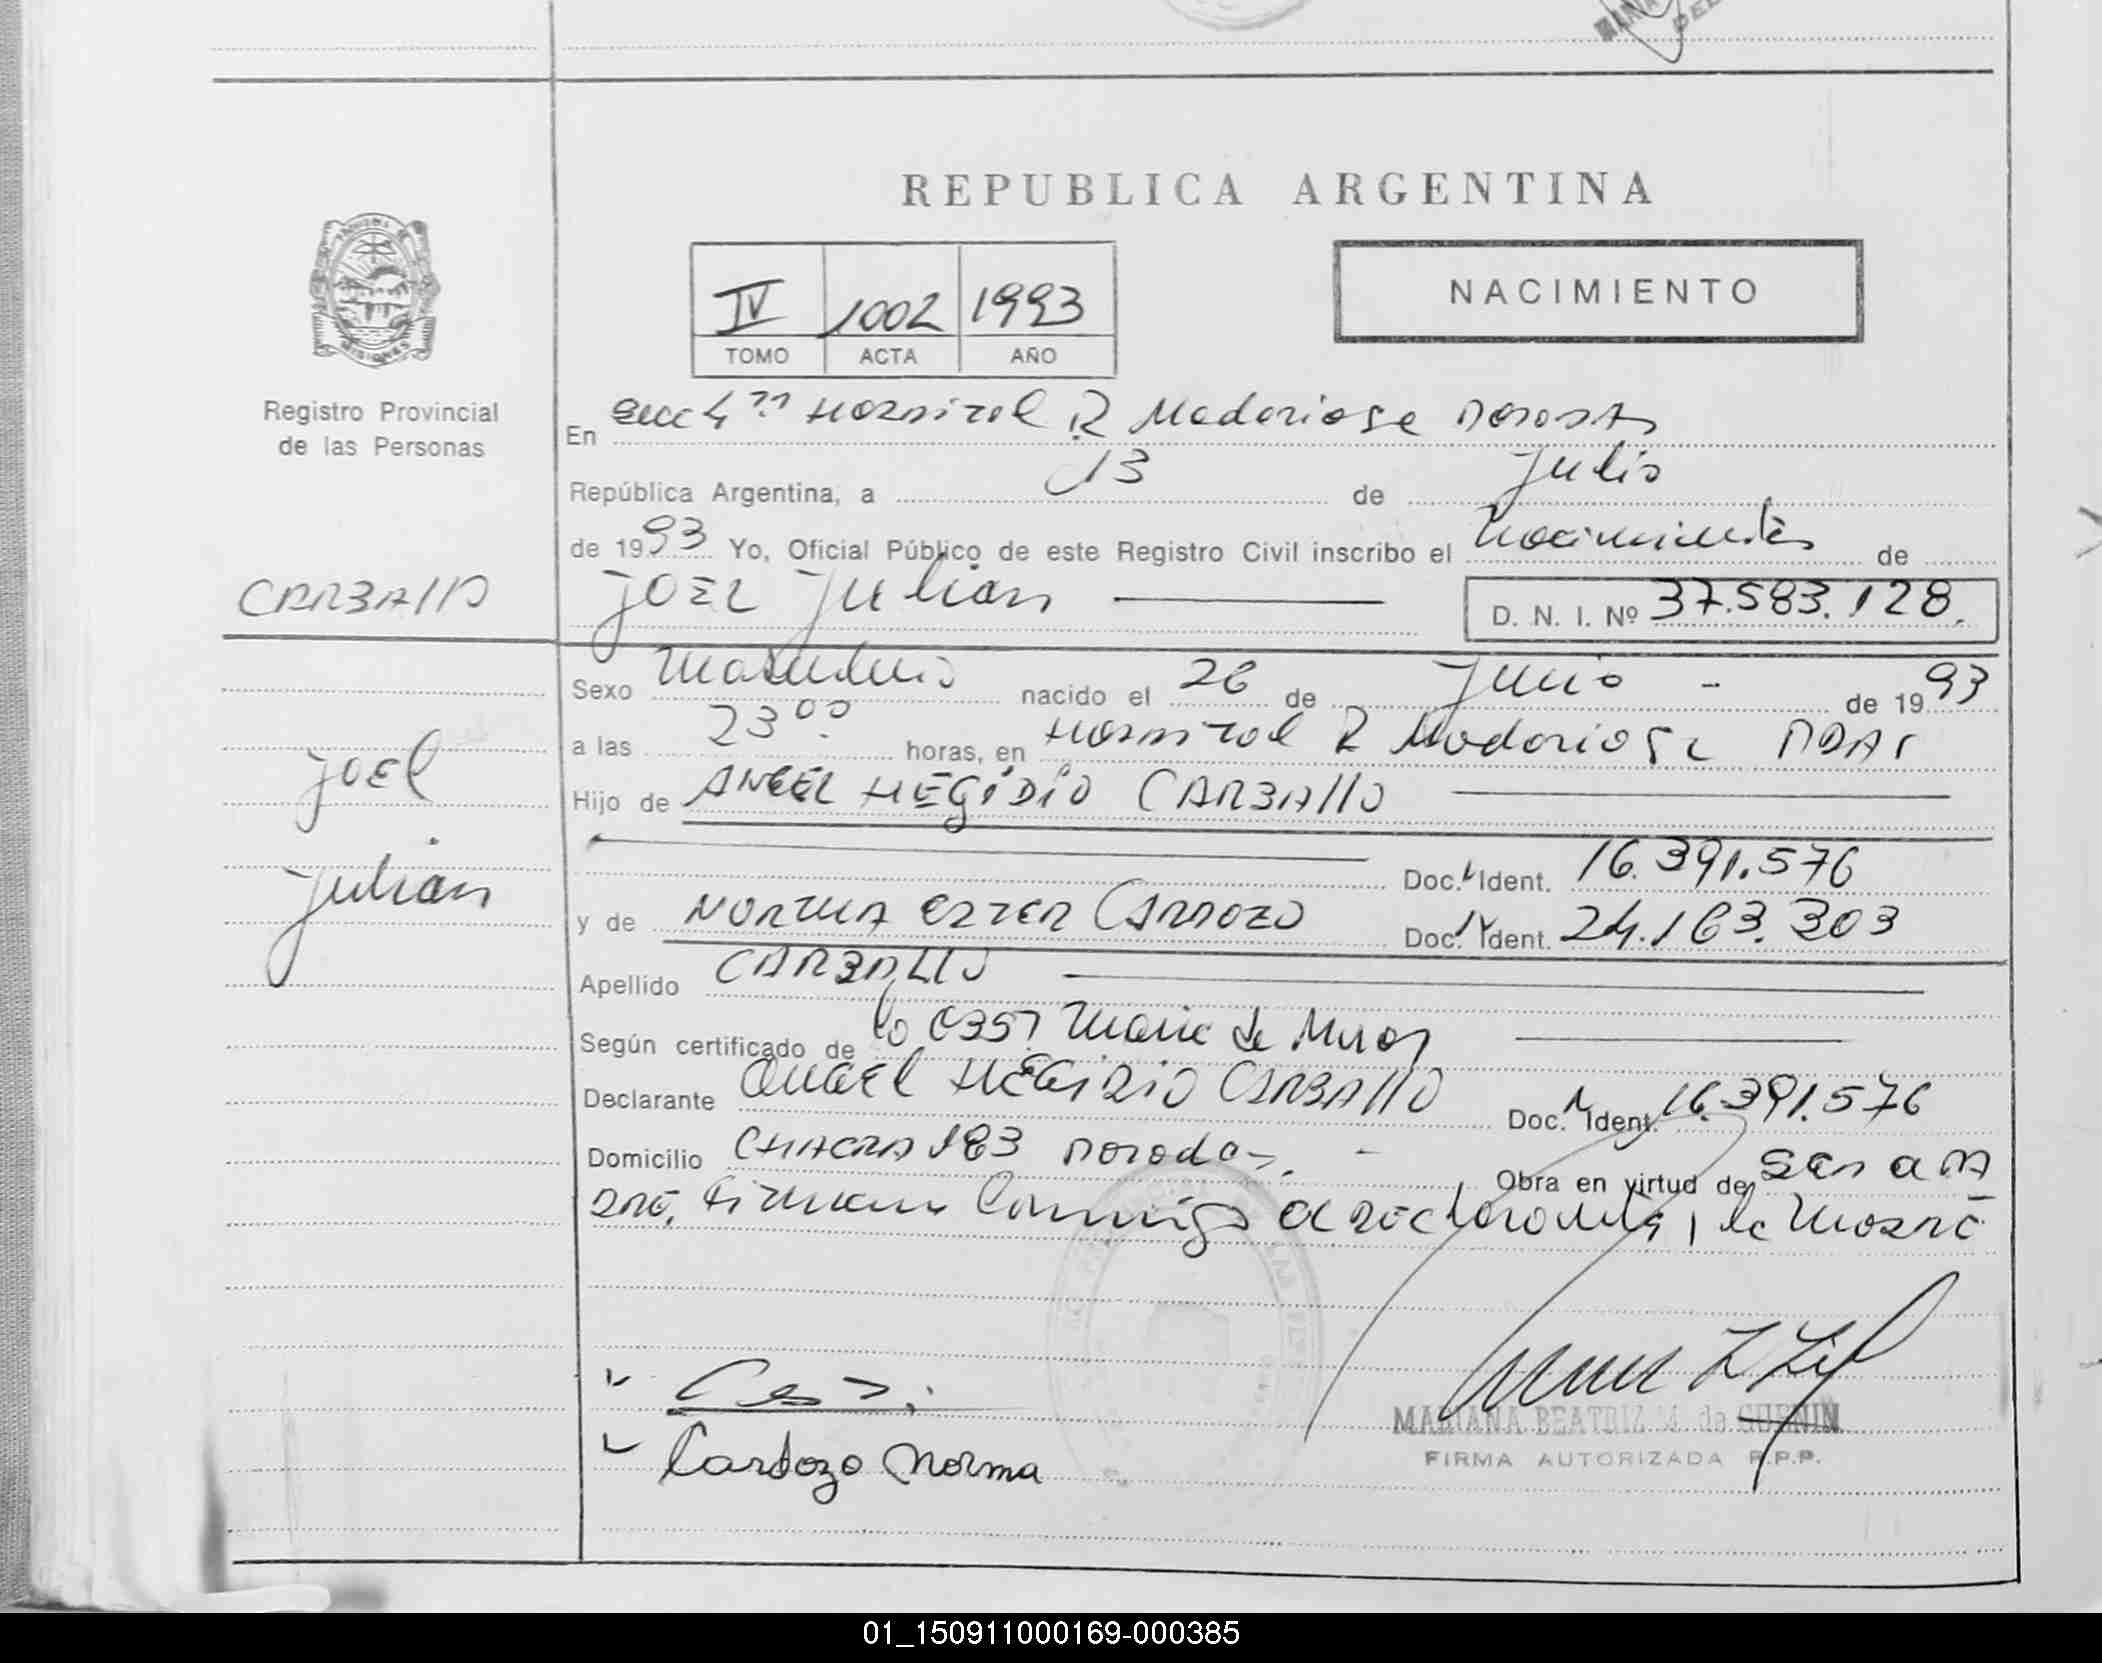 REPUBLICA ARGENTINA
NACIMIENTO
IV 1002 1993
TOMO ACTA AÑO
Registro Provincial
de las Personas
En Secc 4ta Hospital R Madariaga Posadas
República Argentina, a 13 de Julio
de 1993 Yo, Oficial Público de este Registro Civil inscribo el Nacimiento de
CARBAllO
JOEL Julian
D. N. I. Nº 37.583.128.
Sexo Masculino nacido el 26 de Junio - de 1993
a las 23 00 horas, en Hospital R Madariaga PDAS
Joel
Hijo de ANGEL HEGIDIO CARBAllO
Doc. Ident. 16.391.576
Julian
y de NORMA ESTER CARDOZO Doc. Ident. 24.163.303
Apellido CARBALLO
Según certificado de la Obst Maria de
Declarante Angel HEGIDIO CARBAllO Doc. Ident. 16.391.576
Domicilio CHACRA 183 Posadas. - Obra en virtud de ser el PA
DRE, Firman Conmigo el declarante, la Madre
Cardozo Norma
MARIANA BEATRIZ de GUENIN
FIRMA AUTORIZADA R.P.P.
01_150911000169-000385